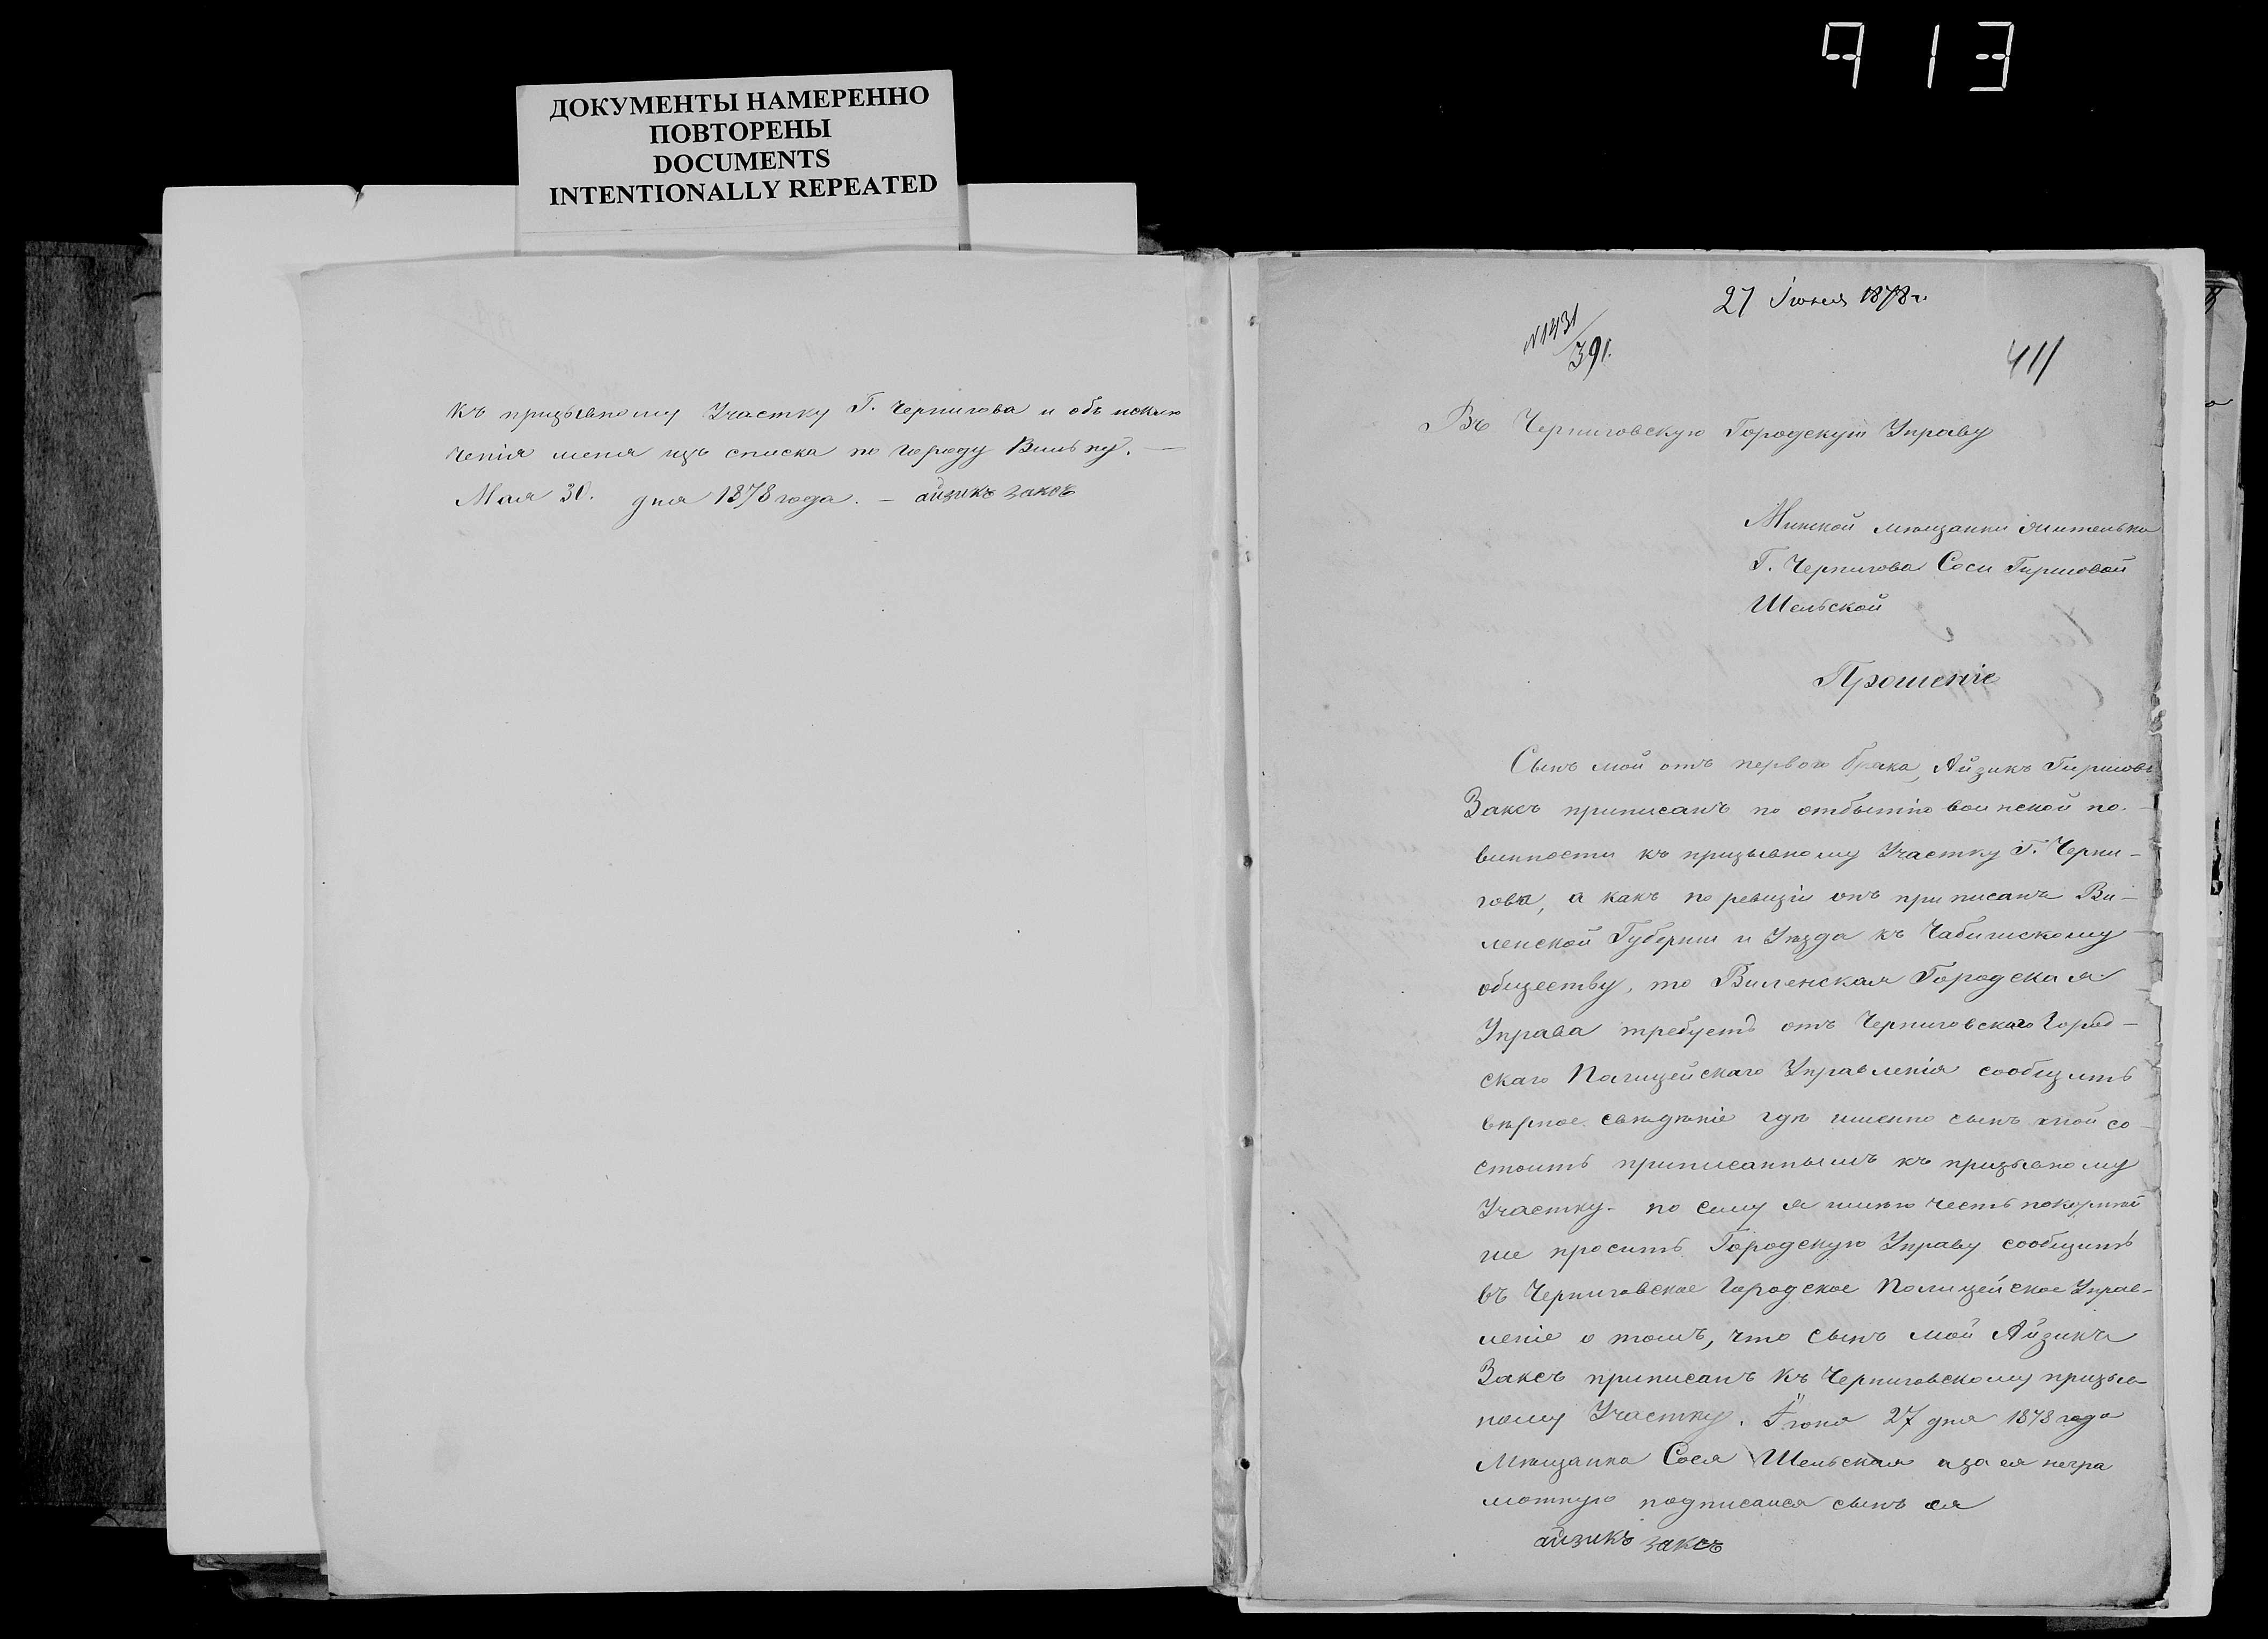 913
ДОКУМЕНТЫ НАМЕРЕННО
ПОВТОРЕНЫ
DOCUMENTS
INTENTIONALLY REPEATED
Къ призывному Участку Г. Чернигова и объ исклю
ченія меня изъ списка по городу Вильну. —
Мая 30. дня 1878 года. — айзикъ заксъ
27 Іюня 1878 г.
№ 1431
391.
411
Въ Черниговскую Городскую Управу
Минской мѣщанки жительки
Г. Чернигова Соси Гиршовой
Шельской
Прошеніе
Сынъ мой отъ первого брака, Айзикъ Гиршовъ
Заксъ приписанъ по отбытію воинской по-
винности къ призывному Участку Г. Черни-
гова, а какъ по ревизіи онъ приписанъ Ви-
ленской Губерніи и Уѣзда къ Чабишскому
обществу, то Виленская Городская
Управа требуетъ отъ Черниговскаго Город-
скаго Полицейскаго Управленія сообщить
вѣрное свѣдѣніе гдѣ именно сынъ мой со-
стоитъ приписаннымъ къ призывному
Участку. по сему я имѣю честь покорнѣй
ше просить Городскую Управу сообщить
въ Черниговское Городское Полицейское Управ-
леніе о томъ, что сынъ мой Айзикъ
Заксъ приписанъ Къ Черниговскому призыв-
ному Участку. Іюня 27 дня 1878 года
Мѣщанка Сося Шельская а за ея негра
мотную подписался сынъ ея
айзикъ заксъ